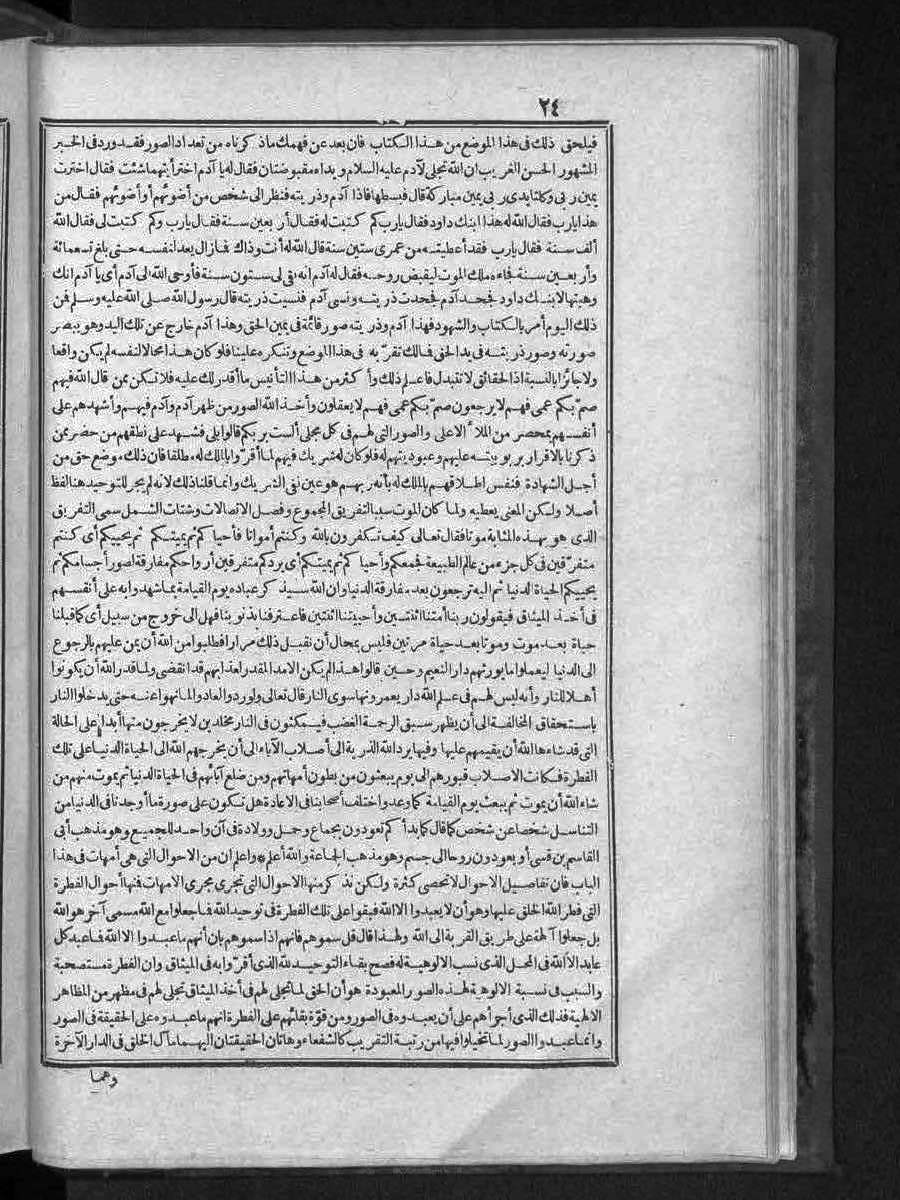 ٢٤
فيلحق ذلك فى هذا الموضع من هذا الكتاب فان بعد عن فهمك ماذكرناه من تعداد الصور فقد ورد فى الخبر
المشهور الحسن الغريب ان الله تجلى لآدم عليه السلام ويداه مقبوضتان فقال له يا آدم اختر أيتهما شئت فقال اخترت
يمين ربى وكلتا يدى ربى يمين مباركة قال فبسطها فاذا آدم وذريته فنظر الى شخص من أضوئهم أو أضوئهم فقال من
هذا يارب فقال الله له هذا ابنك داود فقال يارب كم كتبت له فقال أربعين سنة فقال يارب وكم كتبت لى فقال الله
ألف سنة فقال يارب فقد أعطيته من عمرى ستين سنة قال الله له أنت وذاك فمازال يعد لنفسه حتى بلغ تسعمائة
وأربعين سنة فجاءه ملك الموت ليقبض روحه فقال له آدم انه بقى لى ستون سنة فأوحى الله الى آدم أى يا آدم انك
وهبتها لابنك داود فجحد آدم فجحدت ذريته ونسى آدم فنسيت ذريته قال رسول الله صلى الله عليه وسلم فمن
ذلك اليوم أمر بالكتاب والشهود فهذا آدم وذريته صور قائمة فى يمين الحق وهذا آدم خارج عن تلك اليد وهو يبصر
صورته وصور ذريته فى يد الحق فمالك تقرّ به فى هذا الموضع وتنكره علينا فلو كان هذا محالا لنفسه لم يكن واقعا
ولا جائزا بالنسبة اذ الحقائق لا تتبدل فاعلم ذلك وأكثر من هذا التأنيس ما أقدر لك عليه فلا تكن ممن قال الله فيهم
صمّ بكم عمى فهم لا يرجعون صمّ بكم عمى فهم لا يعقلون وأخذ الله الصور من ظهر آدم وآدم فيهم وأشهدهم على
أنفسهم بمحضر من الملأ الاعلى والصور التى لهم فى كل مجلى ألست بربكم قالوا بلى فشهد على نطقهم من حضر ممن
ذكرنا بالاقرار بربوبيته عليهم وعبوديتهم له فلو كان له شريك فيهم لما أقرّوا بالملك له مطلقا فان ذلك موضع حق من
أجل الشهادة فنفس اطلاقهم بالملك له بأنه ربهم هو عين نفى الشريك وانما قلنا ذلك لانه لم يجر للتوحيد هنا لفظ
أصلا ولكن المعنى يعطيه ولما كان الموت سببا لتفريق المجموع وفصل الاتصالات وشتات الشمل سمى التفريق
الذى هو بهذه المثابة موتا فقال تعالى كيف تكفرون بالله وكنتم أمواتا فأحياكم ثم يميتكم ثم يحييكم أى كنتم
متفرّقين فى كل جزء من عالم الطبيعة فجمعكم وأحياكم ثم يميتكم أى يردكم متفرقين أرواحكم مفارقة لصور أجسامكم ثم
يحييكم الحياة الدنيا ثم اليه ترجعون بعد مفارقة الدنيا وان الله سيذكر عباده يوم القيامة بما شهدوا به على أنفسهم
فى أخذ الميثاق فيقولون ربنا أمتنا اثنتين وأحييتنا اثنتين فاعترفنا بذنوبنا فهل الى خروج من سبيل أى كما قبلنا
حياة بعد موت وموتا بعد حياة مرتين فليس بمحال أن نقبل ذلك مرارا فطلبوا من الله أن يمن عليهم بالرجوع
الى الدنيا ليعملوا ما يورثهم دار النعيم وحين قالوا هذا لم يكن الامد المقدر لعذابهم قد انقضى ولما قدر الله أن يكونوا
أهلا للنار وأنه ليس لهم فى علم الله دار يعمرونها سوى النار قال تعالى ولو ردوا لعادوا لما نهوا عنه حتى يدخلوا النار
باستحقاق المخالفة الى أن يظهر سبق الرحمة الغضب فيمكثون فى النار مخلدين لا يخرجون منها أبدا على الحالة
التى قد شاءها الله أن يقيمهم عليها وفيها يرد الله الذرية الى أصلاب الآباء الى أن يخرجهم الله الى الحياة الدنيا على تلك
الفطرة فكانت الاصلاب قبورهم الى يوم يبعثون من بطون أمهاتهم ومن ضلع آبائهم فى الحياة الدنيا ثم يموت منهم من
شاء الله أن يموت ثم يبعث يوم القيامة كما وعد واختلف أصحابنا فى الاعادة هل تكون على صورة ما أوجدنا فى الدنيا من
التناسل شخصا عن شخص كما قال كما بدأكم تعودون بجماع وحمل وولادة فى آن واحد للجميع وهو مذهب أبى
القاسم بن قسى أو يعودون روحا الى جسم وهو مذهب الجماعة والله أعلم * واعلم ان من الاحوال التى هى أمهات فى هذا
الباب فان تفاصيل الاحوال لا تحصى كثرة ولكن نذكر منها الاحوال التى تجرى مجرى الامهات فمنها أحوال الفطرة
التى فطر الله الخلق عليها وهو أن لا يعبدوا الا الله فبقوا على تلك الفطرة فى توحيد الله فما جعلوا مع الله مسمى آخر هو الله
بل جعلوا آلهة على طريق القربة الى الله ولهذا قال قل سموهم فانهم اذا سموهم بان أنهم ما عبدوا الا الله فما عبد كل
عابد الا الله فى المحل الذى نسب الالوهية له فصح بقاء التوحيد لله الذى أقرّوا به فى الميثاق وان الفطرة مستصحبة
والسبب فى نسبة الالوهية لهذه الصور المعبودة هو أن الحق لما تجلى لهم فى أخذ الميثاق تجلى لهم فى مظهر من المظاهر
الالهية فذلك الذى أجرأهم على أن يعبدوه فى الصور ومن قوّة بقائهم على الفطرة انهم ما عبدوه على الحقيقة فى الصور
وانما عبدوا الصور لما تخيلوا فيها من رتبة التقريب كالشفعاء وهاتان الحقيقتان اليهما مآل الخلق فى الدار الآخرة
وهما